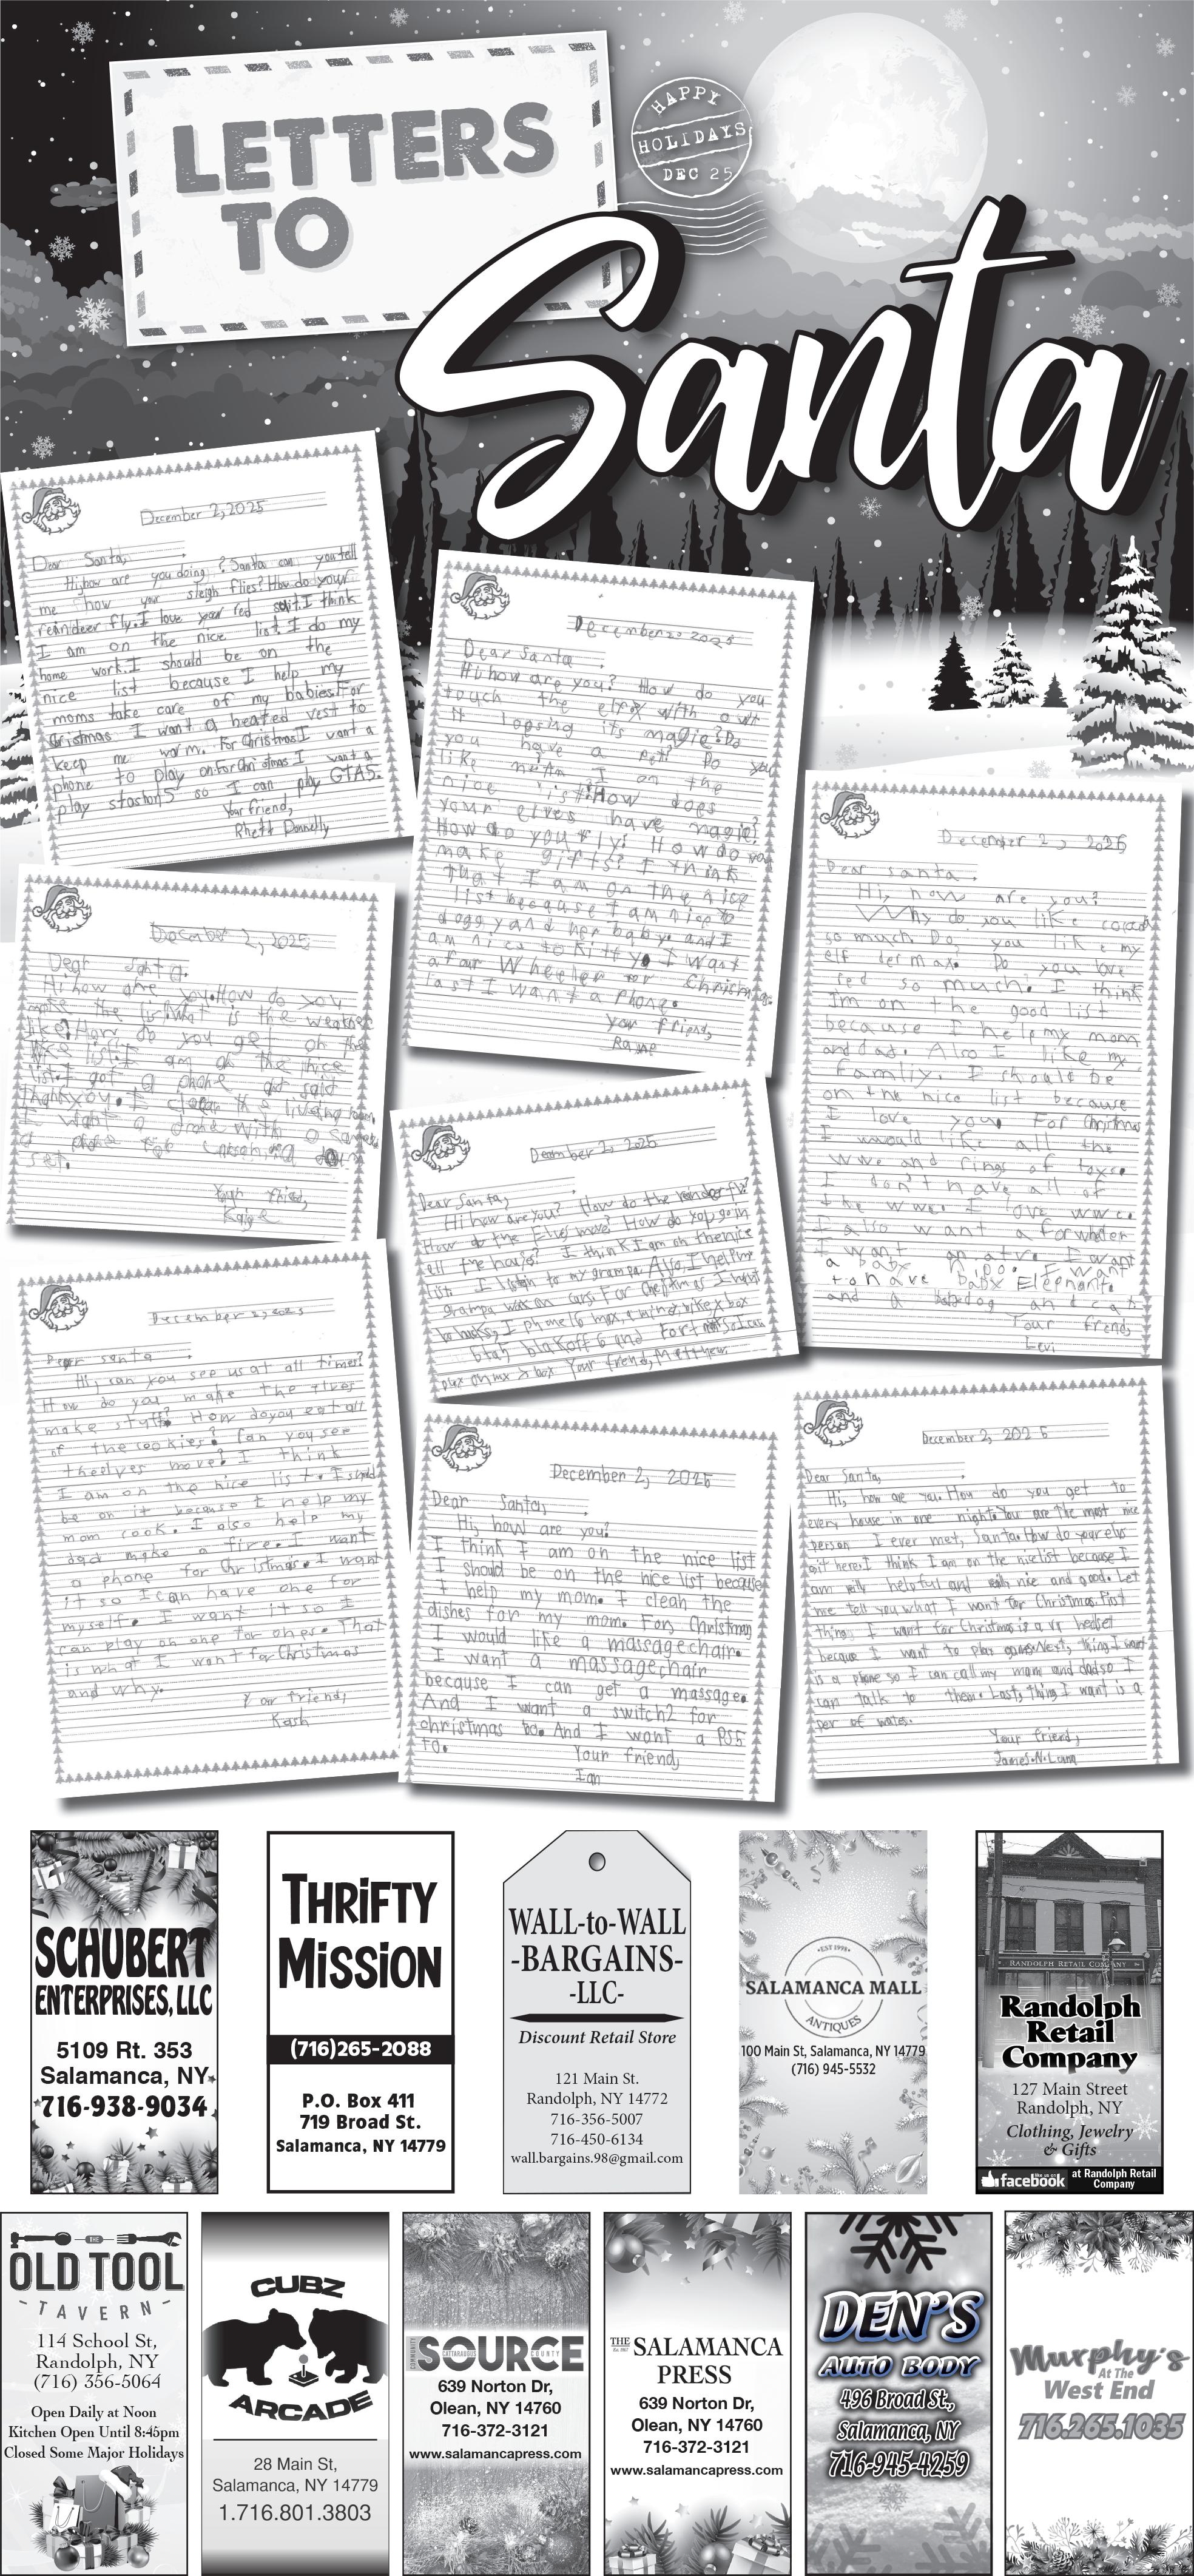 LETTERS
TO
Santa
HAPPY
HOLIDAYS
DEC 25
December 2, 2025
Dear Santa,
Hi, how are you doing? Santa can you tell
me how your sleigh flies? How do your
reindeer fly. I love your red suit. I think
I am on the nice list. I do my
home work. I should be on the
nice list because I help my
moms take care of my babies. For
Christmas I want a heated vest to
keep me warm. For Christmas I want a
phone to play on. For Christmas I want a
play staston5 so I can play GTA5.
Your friend,
Rhett Donnelly
December 2025
Dear Santa,
Hi how are you? How do you
touch the elf with owt
it loosing its magie? Do
you have a pet? Do you
like
I on the
nice list? How does
your elves have magie?
How do you fly! How do you
make gifts? I think
that I am on the nice
list because I am nice to
doggy and her baby. and I
am nice to kitty. I want
a four wheeler for Christmas.
last I want a phone.
your friend,
December 2, 2025
Dear santa,
Hi, how are you?
Why do you like
so much Do you like my
elf der max. Do you love
red so much. I think
I'm on the good list
because I help my mom
and dad. Also I like my
Famliy. I should be
on the nice list because
I love you. For Christmas
I would like all the
wwe and rings of toys.
I don't have all of
the wwe. I love wwe.
I also want a
I want an atv. I want
a baby hippo. I want
to have baby Elephant.
and a dog and cat
Your friend,
Levi
December 2, 2025
Dear Santa.
Hi how are you. How do you
make the list. What is the
like? How do you get on the
nice list. I am on the nice
list. I got a phone and said
thank you. I clean the living room.
I want a drone with a
a phone
set.
Your friend,
December 2, 2025
Dear Santa,
Hi how are you? How do the reinderfly?
How do the Elves move? How do you go in
all the house? I think I am on the nice
list. I listen to my grampa. Also, I help my
grampa work on cars. For Christmas I want
I phone 16 max, a mini bike, x box
6 and Fortnit so I can
play on my x box Your friend, Metthew
December 2, 2025
Dear santa,
Hi, can you see us at all times?
How do you make the elves
make stuff? How do you eat all
of the cookies? Can you see
the elves move? I think
I am on the nice list. I should
be on it because I help my
mom cook. I also help my
dad make a fire. I want
a phone for Christmas. I want
it so I can have one for
myself. I want it so I
can play on one for ones. That
is what I want for Christmas
and why.
Your friend,
Kash
December 2, 2025
Dear Santa,
Hi, how are you?
I think I am on the nice list
I should be on the nice list because
I help my mom. I clean the
dishes for my mom. For Christmas
I would like a massagechair.
I want a massagechair
because I can get a massage.
And I want a switch2 for
christmas to. And I want a PS5
to.
Your friend,
Ian
December 2, 2025
Dear Santa,
Hi, how are you. How do you get to
every house in one night. You are the most nice
person I ever met, Santa. How do your elvs
git here. I think I am on the nice list because I
am rely helpful and nice and good. Let
me tell you what I want for Christmas. First
thing I want for Christmas is a vr hedset
because I want to play games. Next, thing I want
is a phone so I can call my mom and dad so I
can talk to them. Last, thing I want is a
per of
Your friend,
James.N.Lunn
SCHUBERT
ENTERPRISES, LLC
5109 Rt. 353
Salamanca, NY
716-938-9034
THRiFTY
MiSSiON
(716)265-2088
P.O. Box 411
719 Broad St.
Salamanca, NY 14779
WALL-to-WALL
-BARGAINS-
-LLC-
Discount Retail Store
121 Main St.
Randolph, NY 14772
716-356-5007
716-450-6134
wall.bargains.98@gmail.com
•EST 1998•
SALAMANCA MALL
ANTIQUES
100 Main St, Salamanca, NY 14779
(716) 945-5532
RANDOLPH RETAIL COMPANY
Randolph
Retail
Company
127 Main Street
Randolph, NY
Clothing, Jewelry
& Gifts
like us on
facebook
at Randolph Retail
Company
THE
OLD TOOL
-TAVERN-
114 School St,
Randolph, NY
(716) 356-5064
Open Daily at Noon
Kitchen Open Until 8:45pm
Closed Some Major Holidays
CUBZ
ARCADE
28 Main St,
Salamanca, NY 14779
1.716.801.3803
COMMUNITY
SOURCE
CATTARAUGUS COUNTY
639 Norton Dr,
Olean, NY 14760
716-372-3121
www.salamancapress.com
THE SALAMANCA
PRESS
639 Norton Dr,
Olean, NY 14760
716-372-3121
www.salamancapress.com
DEN'S
AUTO BODY
496 Broad St.,
Salamanca, NY
716-945-4259
Murphy's
At The
West End
716.265.1035